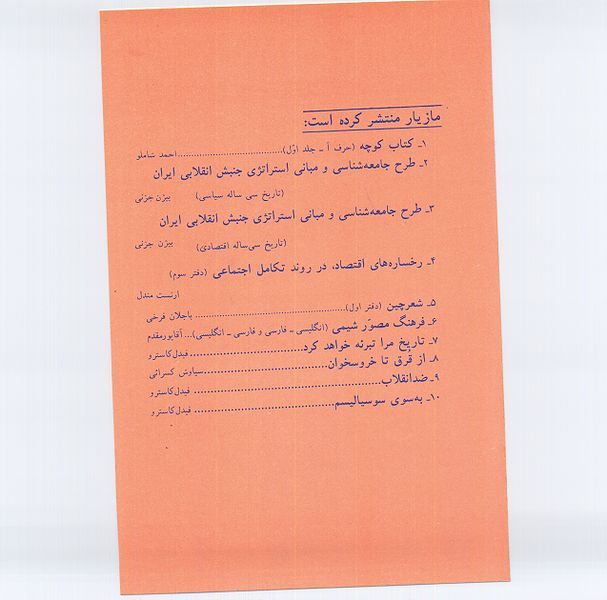 مازیار منتشر کرده است:
۱ـ کتاب کوچه (حرف آ ـ جلد اوّل)........................................احمد شاملو
۲ـ طرح جامعه‌شناسی و مبانی استراتژی جنبش انقلابی ایران
(تاریخ سی ساله سیاسی) بیژن جزنی
۳ـ طرح جامعه‌شناسی و مبانی استراتژی جنبش انقلابی ایران
(تاریخ سی‌ساله اقتصادی) بیژن جزنی
۴ـ رخساره‌های اقتصاد، در روند تکامل اجتماعی (دفتر سوم)
ارنست مندل
۵ـ شعرچین (دفتر اول)........................................................باجلان فرخی
۶ـ فرهنگ مصوّر شیمی (انگلیسی ـ فارسی و فارسی ـ انگلیسی)... آقاپورمقدم
۷ـ تاریخ مرا تبرئه خواهد کرد..........................................فیدل‌کاسترو
۸ـ از قُرق تا خروسخوان..............................................سیاوش کسرائی
۹ـ ضدانقلاب............................................................ فیدل‌کاسترو
۱۰ـ به‌سوی سوسیالیسم.................................................. فیدل‌کاسترو